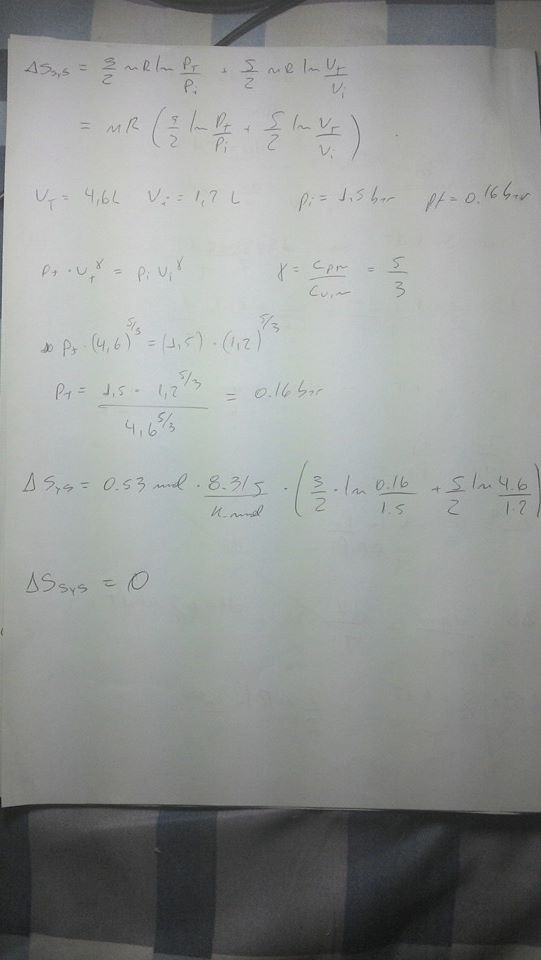 ΔS_sys = 3/2 nR ln P_f/P_i + 5/2 nR ln V_f/V_i
= nR ( 3/2 ln P_f/P_i + 5/2 ln V_f/V_i ) .
V_f = 4,6L V_i = 1,2 L P_i = 1,5 bar P_f = 0.16 bar
P_f · V_f^γ = P_i V_i^γ γ = C_p,m / C_v,m = 5/3
P_f · (4,6)^5/3 = (1,5) · (1,2)^5/3
P_f = 1,5 · 1,2^5/3 / 4,6^5/3 = 0.16 bar
ΔS_sys = 0.53 mol · 8.31 J / K·mol · ( 3/2 · ln 0.16/1.5 + 5/2 ln 4.6/1.2 )
ΔS_sys = 0